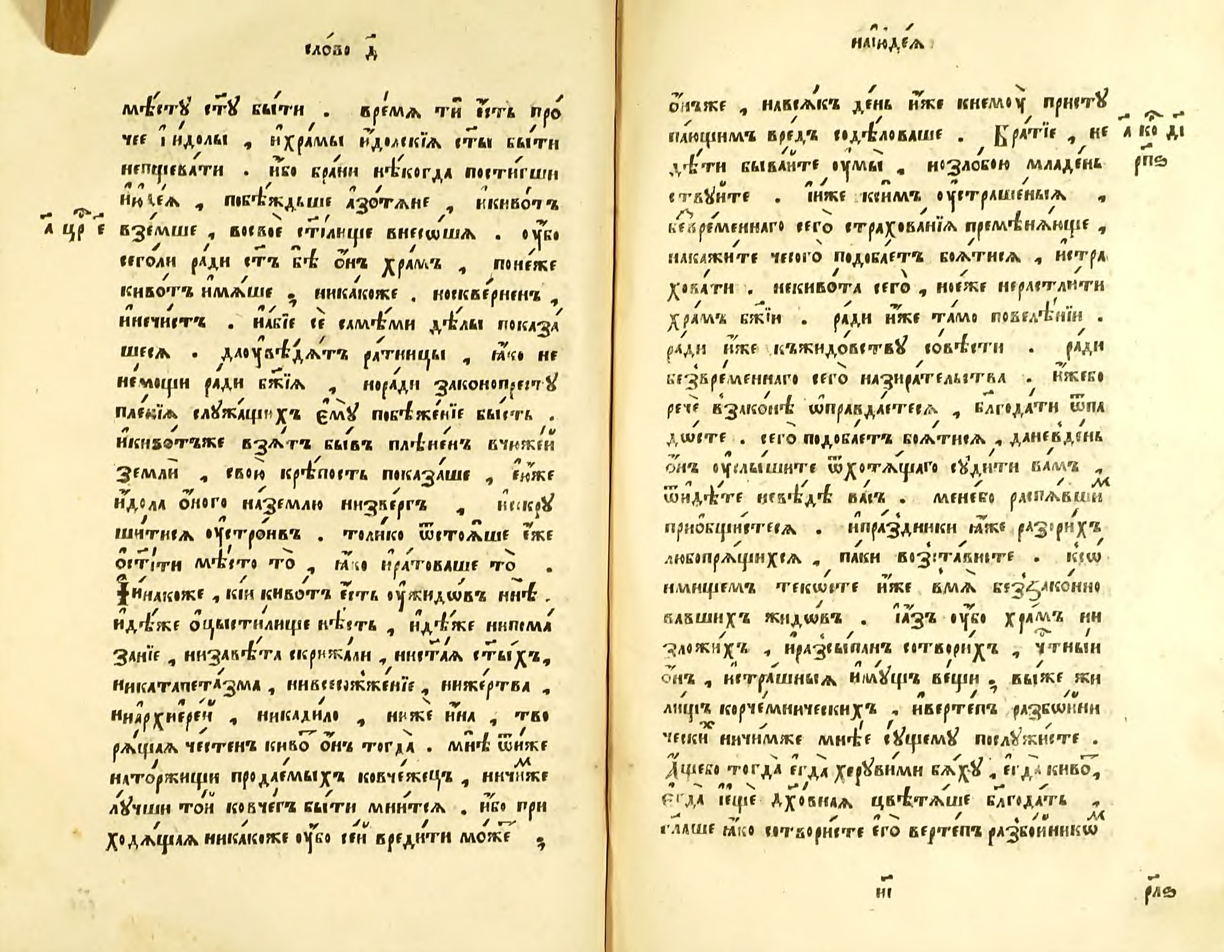 сло́во д҃
мѣ́сту ст҃ꙋ бы́ти . вре́мѧ ти̏ є҆́сть про́
чее і҆ и҆́долы , и҆хра́мы и҆до́лскїѧ ст҃ы бы́ти
непщева́ти . и҆́бо бра́ни нѣ́когда пости́гши
и҆ю҆де́ѧ , побѣ́ждьше а҆зо́тѧне , и҆киво́тъ
а҃ цр҃ е҃
взе́мше , восвоѐ ст҃и́лище внесо́шѧ . ᲂу҆́бо
сего́ли ра́ди ст҃ъ бѣ̀ ѻ҆́нъ хра́мъ , поне́же
киво́тъ и҆мѧ́ше ; ника́коже . носкве́рненъ ,
и҆нечи́стъ . и҆а҆́бїе се̏ самѣ́ми дѣ́лы показа́
шесѧ . даᲂу҆вѣ́дѧтъ ра́тницы , ꙗ҆́ко не
не́мощи ра́ди бж҃їѧ , нора́ди законопрестꙋ
пле́нїѧ слꙋ́жащихъ є҆мꙋ̀ побѣже́нїе бы́сть .
и҆киво́тъже взѧ́тъ бы́въ плѣне́нъ вчꙋже́й
землѝ , свою̀ крѣ́пость показа́ше , є҆ю҆́же
и҆́дола ѻ҆́ного на́землю низве́ргъ , и҆скрꙋ
ши́тисѧ ᲂу҆стро́ивъ . толи́ко ѿстоѧ́ше є҆́же
ѻ҆ст҃и́ти мѣ́сто то̀ , ꙗ҆́ко и҆ра́товаше то̀ .
И҆и҆на́коже , кі́и киво́тъ є҆́сть ᲂу҆жидѡ́въ нн҃ѣ .
и҆дѣ́же ѻ҆цыⷭ҇ти́лище нѣ́сть , и҆дѣ́же нипома́
занїе , низавѣ́та скрижа́ли , нист҃а́ѧ ст҃ы́хъ ,
никатапета́зма , нивсесожже́нїе , ниже́ртва ,
ниа҆рхїере́й , никади́ло , ниже̏ и҆́на , тво
рѧ́щаѧ че́стенъ киво́ ѻ҆́нъ тогда̀ . мнѣ́ ѿи́же
нато́ржищи продае́мыхъ ковче́жецъ , ничи́мже
лꙋ́чши то́й ковче́гъ бы́ти мни́тсѧ . и҆́бо при
ходѧ́щаѧ ника́коже ᲂу҆́бо се́й вреди́ти мо́же ;
наїю҆де́ѧ
ѻ҆́нъже , навсѧ́къ де́нь и҆́же кнемꙋ̀ пристꙋ
па́ющимъ вре́дъ содѣ́ловаше . Бра́тїе , не
а҃ ко дı҃
рп҃ѕ
дѣ́ти быва́йте ᲂу҆мы̀ , нозло́бою младе́нь
ствꙋйте . и҆и҆́же кси́мъ ᲂу҆страше́ныѧ ,
безвре́меннаго сего̀ страхова́нїѧ премѣнѧ́юще ,
накажи́те чесого̀ подоба́етъ боѧ́тисѧ , и҆стра
хова́ти . некиво́та сего̀ , ное҆́же нерастли́ти
хра́мъ бж҃їи . ра́ди и҆́же та́мо повелѣ́нїи .
ра́ди и҆́же кжидо́вствꙋ со́вѣсти . ра́ди
безвре́меннаго сего̀ назира́тельства . и҆́жебо
речѐ взако́нѣ ѡ҆правда́етесѧ , блг҃ода́ти ѿпа
до́сте . сего̀ подоба́етъ боѧ́тисѧ , даневде́нь
ѻ҆́нъ ᲂу҆слы́шите ѿхотѧ́щаго сꙋди́ти ва́мъ ,
ѿидѣ́те невѣ́дѣ ва́съ . мене́бо распѧ́вшим
приѻ҆бщи́стесѧ . и҆пра́здники ꙗ҆́же разори́хъ
любопрѧ́щихсѧ , па́ки возста́висте . ксо
ни́щемъ теко́сте и҆́же вмѧ̀ беззако́нно
вавшихъ жидѡ́въ . і҆а҆́зъ ᲂу҆́бо хра́мъ ни
зложи́хъ , и҆разсы́панъ сотвори́хъ , чⷭ҇тныи
ѻ҆́нъ , и҆стра́шныѧ и҆мꙋ́щъ ве́щи ; вы́же жи
ли́щъ корче́мническихъ , и҆верте́пъ разбо́йни
чески ничи́мже мнѣ́е сꙋ́щемꙋ послꙋжи́сте .
А҆́щебо тогда̀ є҆гда̀ херꙋви́ми бѧ́хꙋ , є҆гда̀ киво́ ,
є҆гда̀ і҆є҆ще̏ дх҃о́внаѧ цвѣтѧ́ше блг҃ода́ть ,
гл҃аше ꙗ҆́ко сотвори́сте є҆го̀ верте́пъ разбо́йником
ні҃
рл҃ѕ